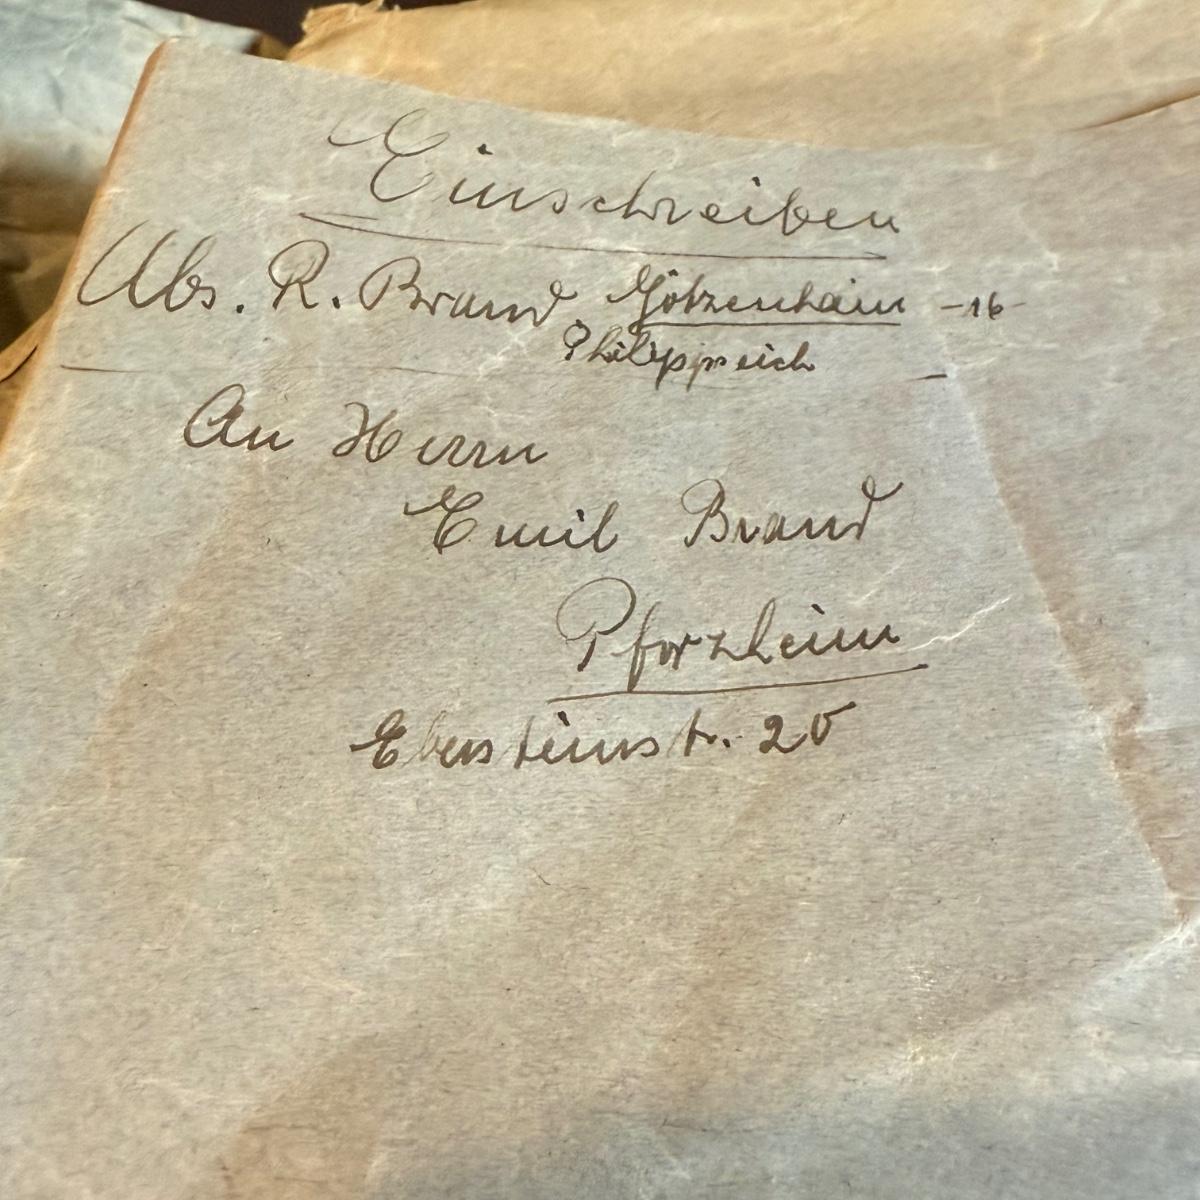 Einschreiben
Abs. R. Brand, Götzenhain -16-
Philippseich
An Herrn
Emil Brand
Pforzheim
Ebersteinstr. 20